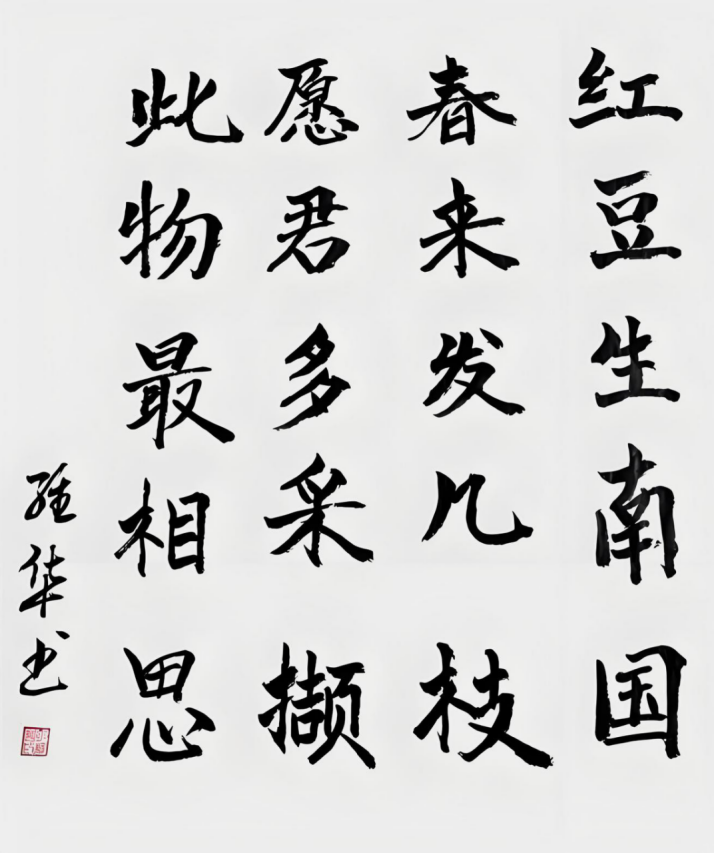 红豆生南国
春来发几枝
愿君多采撷
此物最相思
华书